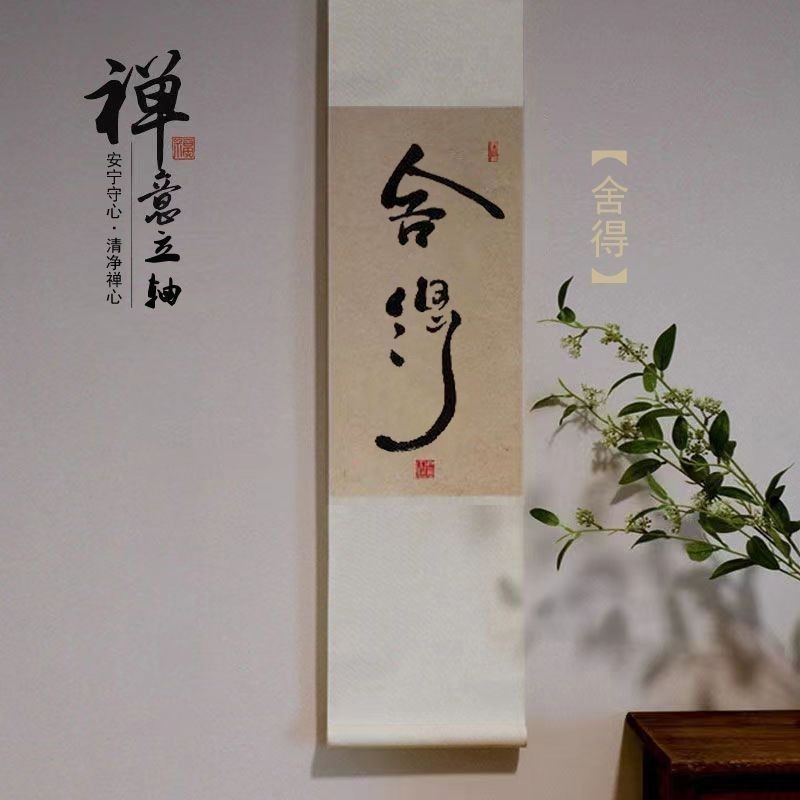 禅意立轴
安宁守心·清净禅心
舍得
【舍得】